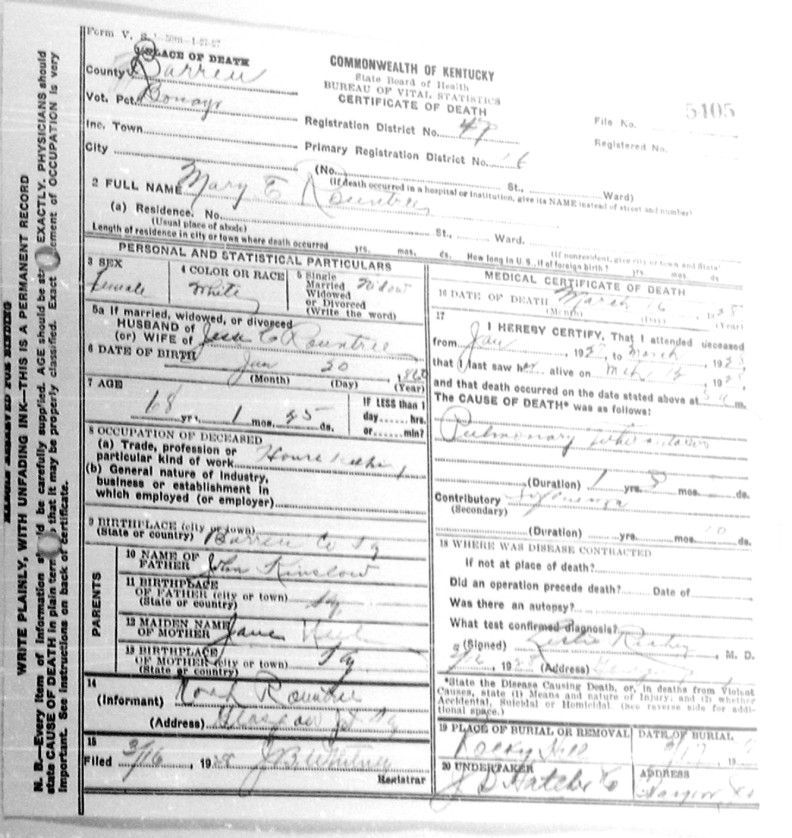 Form V. S. 1-50m-1-27-27
PLACE OF DEATH
County Barren
Vot. Pct. Bonayr
Inc. Town
City
COMMONWEALTH OF KENTUCKY
State Board of Health
BUREAU OF VITAL STATISTICS
CERTIFICATE OF DEATH
Registration District No. 47
Primary Registration District No. 16
File No. 5405
Registered No.
(No. St., Ward)
(If death occurred in a hospital or institution, give its NAME instead of street and number)
2 FULL NAME Mary E Rountree
(a) Residence. No. St., Ward.
(Usual place of abode) (If nonresident, give city or town and State)
Length of residence in city or town where death occurred yrs. mos. ds. How long in U. S., if of foreign birth? yrs mos ds
PERSONAL AND STATISTICAL PARTICULARS
3 SEX Female
4 COLOR OR RACE White
5 Single Married Widowed or Divorced (Write the word) Widow
5a If married, widowed, or divorced
HUSBAND of
(or) WIFE of Jesse C Rountree
6 DATE OF BIRTH Jan 20
(Month) (Day) (Year)
7 AGE
yrs. 1 mos. 25 ds.
IF LESS than 1
day hrs.
or min?
8 OCCUPATION OF DECEASED
(a) Trade, profession or
particular kind of work
(b) General nature of industry,
business or establishment in
which employed (or employer)
9 BIRTHPLACE (city or town)
(State or country) Barren Co Ky
PARENTS
10 NAME OF
FATHER John Kinslow
11 BIRTHPLACE
OF FATHER (city or town)
(State or country) Ky
12 MAIDEN NAME
OF MOTHER Jane
13 BIRTHPLACE
OF MOTHER (city or town)
(State or country) Ky
14
(Informant) Noah Rountree
(Address) Glasgow Jct Ky
15
Filed 3/16, 1928 J B Whitney
Registrar
MEDICAL CERTIFICATE OF DEATH
16 DATE OF DEATH March 16 1928
(Month) (Day) (Year)
17
I HEREBY CERTIFY, That I attended deceased
from Jan, 192, to March, 1928
that I last saw her alive on Mch, 192
and that death occurred on the date stated above at 5 a m.
The CAUSE OF DEATH* was as follows:
Pulmonary Tuberculosis
(Duration) 1 yrs. 8 mos. ds.
Contributory Influenza
(Secondary)
(Duration) yrs. mos. 10 ds.
18 WHERE WAS DISEASE CONTRACTED
If not at place of death?
Did an operation precede death? Date of
Was there an autopsy?
What test confirmed diagnosis?
(Signed) M. D.
1928 (Address)
*State the Disease Causing Death, or, in deaths from Violent
Causes, state (1) Means and nature of Injury, and (2) whether
Accidental, Suicidal or Homicidal. (See reverse side for addi-
tional space.)
19 PLACE OF BURIAL OR REMOVAL
Rocky Hill
DATE OF BURIAL
3/17, 19
20 UNDERTAKER
J B Hatcher Co
ADDRESS
MARGIN RESERVED FOR BINDING
WRITE PLAINLY, WITH UNFADING INK—THIS IS A PERMANENT RECORD
N. B.—Every item of information should be carefully supplied. AGE should be stated EXACTLY. PHYSICIANS should
state CAUSE OF DEATH in plain terms that it may be properly classified. Exact statement of OCCUPATION is very
important. See instructions on back of certificate.